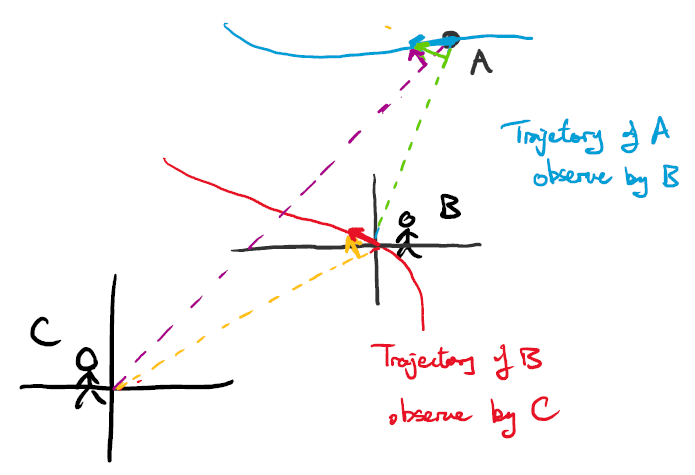 A
Trajetory of A
observe by B
B
C
Trajectory of B
observe by C